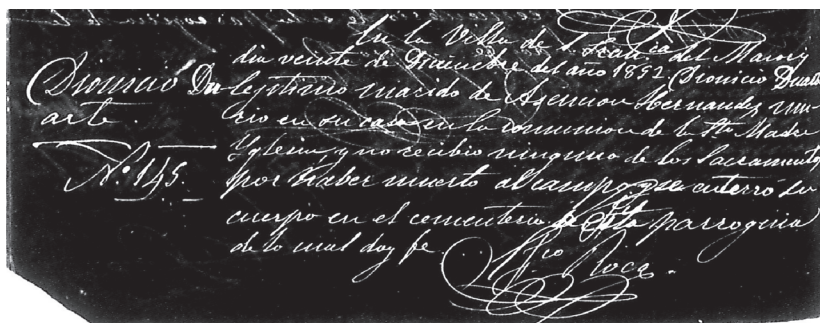 En la Villa de S. Fran.ca del Maroij
dia veinte de Diciembre del año 1892. Dionicio Duarte
Legitimo marido de Asencion Hernandez mu-
rio en su casa en la comunion de la Sta Madre
Yglesia y no recibio ninguno de los Sacramentos
por haber muerto al campo, y se enterró su
cuerpo en el cementerio de esta parroquia
de lo cual doy fe
Fco Roca.
Dionicio Du
arte.
Nº 145.